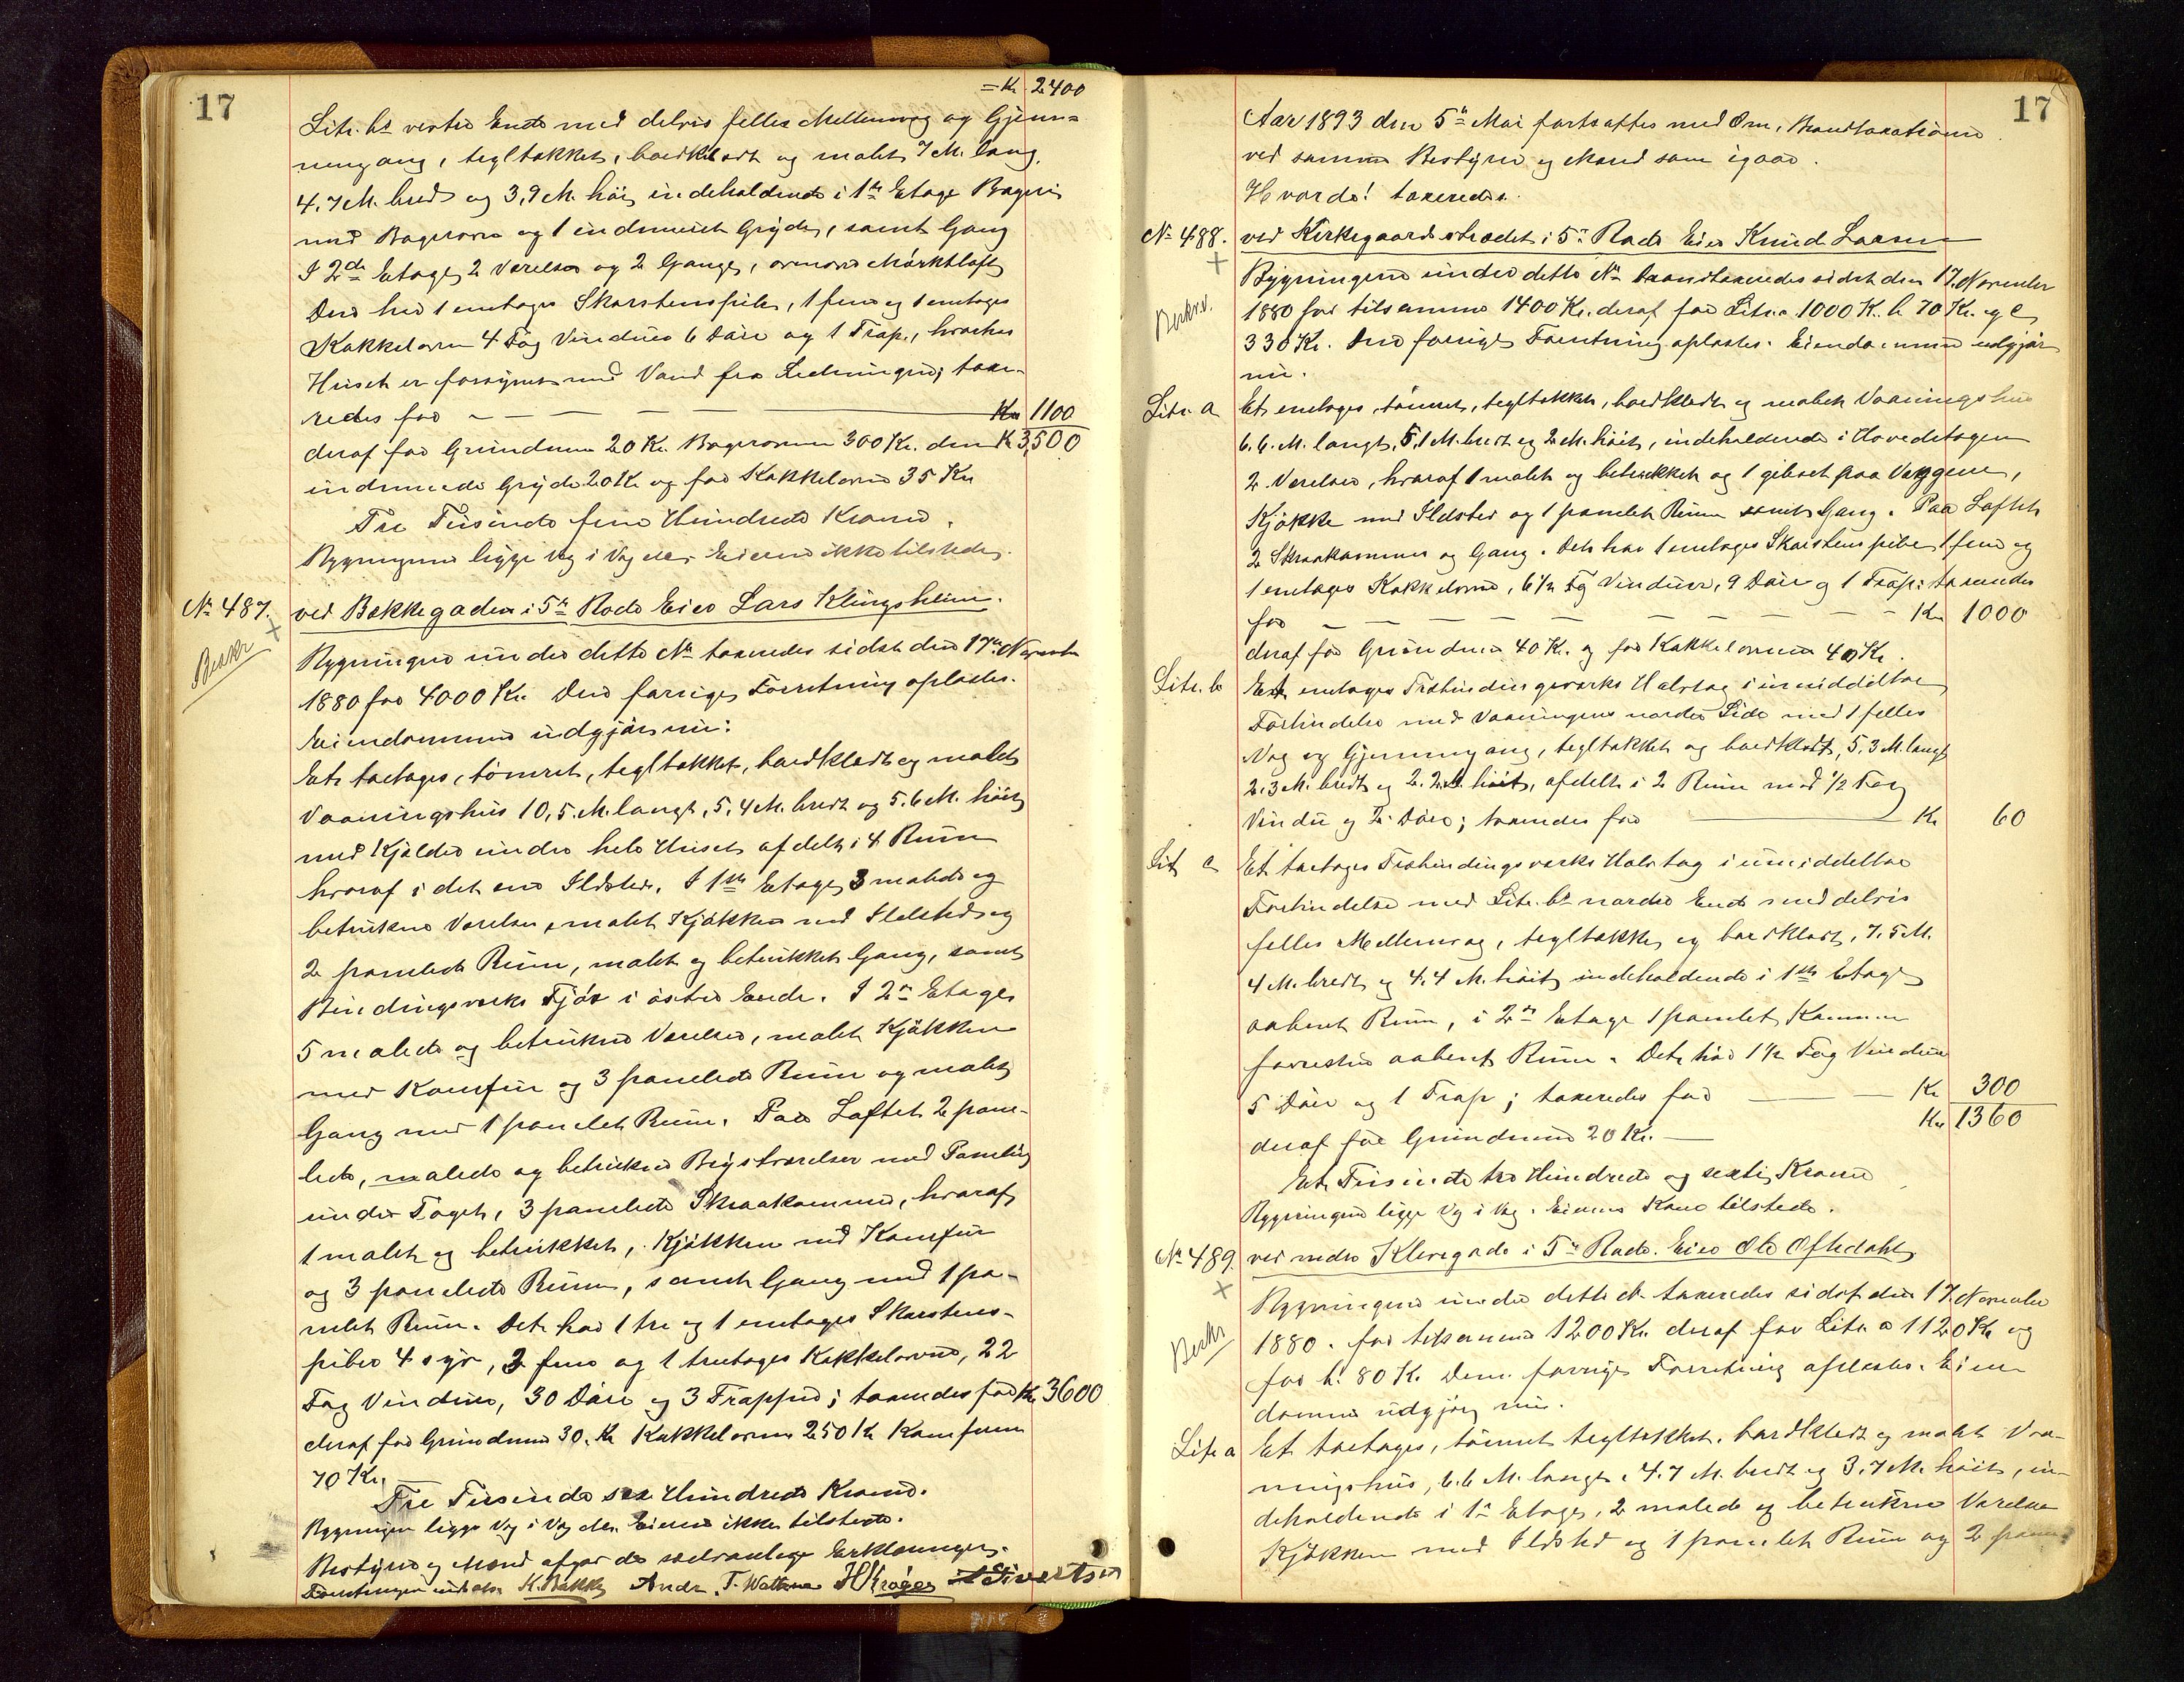 17
= Kr 2400
Litr. bs vestre Ende med delvis felles Mellemvæg og Gjen-
nemgang, tegltækket, bordklædt og malet 7 M. lang,
4.7 M. bred og 3,9 M. høi, indeholdende i 1ste Etage Bageri
med Bagerovn og 1 indmuret Gryde, samt Gang
I 2den Etage, 2 Værelser og 2 Gange, ovenover Mørktloft,
Den har 1 enetages Skorstenspibe, 1 fem og 1 enetages
Kakkelovn 4 Fag Vinduer 6 Døre og 1 Trap.,
Huset er forsynet med Vand fra Ledningen; taxe-
redes for — — — — — Kr 1100
deraf for Grundmur 20 Kr. Bagerovnen 300 Kr. den K 3500
indmurede Gryde 20 Kr og for Kakkelovne 35 Kr
Tre Tusinde fem Hundrede Kroner.
Bygningerne ligge Væg i Væg. Eieren ikke tilstede.
No 487. ved Bakkegaden i 5te Rode Eier Lars Klingsheim.
Beskr
Bygningerne under dette No taxeredes sidst den 17de November
1880 for 4000 Kr. Den forrige Forretning oplæstes.
Eiendommen udgjør nu:
Et toetages, tømret, tegltækket, bordklædt og malet
Vaaningshus 10,5 M. langt, 5,4 M. bredt og 5.6 M. høit,
med Kjælder under hele Huset afdelt i 4 Rum
hvoraf i det ene Ildsted. I 1ste Etage 3 malede og
betrukne Værelser, malet Kjøkken med Ildsted og
2 panelede Rum, malet og betrukket Gang, samt
Bindingsværks Fjøs i østre Ende. I 2den Etage
5 malede og betrukne Værelser, malet Kjøkken
med Komfur og 3 panelede Rum og malet
Gang med 1 panelet Rum. Paa Loftet 2 pane-
lede, malede og betrukne Kvistværelser med Paneling
under Taget, 3 panelede Skraakammere, hvoraf
1 malet og betrukket, Kjøkken med Komfur
og 3 panelede Rum, samt Gang med 1 pa-
nelet Rum. Det har 1 tre og 1 enetages Skorstens-
piber 4 syv, 2 fem og 1 treetages Kakkelovne, 22
Fag Vinduer, 30 Døre og 3 Trapper; taxeredes for Kr 3600
deraf for Grundmur 30. Kr Kakkelovne 250 Kr Komfurer
70 Kr.
Tre Tusinde sex Hundrede Kroner.
Bygningen ligge Væg i Væg. Eieren ikke tilstede.
Bestyrer og Mænd afgav de sædvanlige Erklæringer.
Forretningen sluttet K. Bakke Andr. T. Watne H Krøger Sivertsen
17
Aar 1893 den 5te Mai fortsattes med Om, Brandtaxationerne
ved samme Bestyrer og Mænd som igaar.
Hvorda! taxeredes.
No 488. ved Kirkegaardsstrædet i 5te Rode Eier Knud Larsen
Beskr.
Bygningerne under dette No brandtaxeredes sidst den 17. November
1880 for tilsamme 1400 Kr. deraf for Litr. a 1000 K. b 70 Kr. og c
330 Kr. Den forrige Forretning oplæstes. Eiendommen udgjør
nu.
Litr. a Et enetages, tømret, tegltækket, bordklædt og malet Vaaningshus
6.6. M. langt, 5,1 M. bredt og 2 M. høit, indeholdende i Hovedetagen
2 Værelser, hvoraf 1 malet og betrukket og 1 gibset paa Væggene,
Kjøkken med Ildsted og 1 panelet Rum samt Gang. Paa Loftet
2 Skraakammer og Gang. Det har 1 enetages Skorstenspibe 1 fem og
1 enetages Kakkelovne, 6 1/2 Fag Vinduer, 9 Døre og 1 Trap; taxeredes
for — — — — — — — Kr 1000
deraf for Grundmur 40 Kr. og for Kakkelovne 40 Kr.
Litr. b Et enetages Træbindingsværks Halvtag i umiddelbar
Forbindelse med Vaaningens nordre Side med 1 felles
Væg og Gjennemgang, tegltækket og bordklædt, 5,3 M. langt
2.3 M. bredt og 2.2 M. høit, afdelt i 2 Rum med 1/2 Fag
Vindu og 2 Døre; taxeredes for — Kr 60
Lit c Et toetages Træbindingsværks Halvtag i umiddelbar
Forbindelse med Litr. bs nordre Ende med delvis
felles Mellemvæg, tegltækket og bordklædt, 7.5 M.
4 M. bredt og 4,4 M. høit, indeholdende i 1ste Etage
aabent Rum, i 2den Etage 1 panelet Kammer
forresten aabent Rum. Det har 1 1/2 Fag Vinduer
5 Døre og 1 Trap; taxeredes for — — Kr 300
deraf for Grundmur 20 Kr. — Kr 1360
Et Tusinde tre Hundrede og sexti Kroner
Bygningerne ligge Væg i Væg. Eierens Kone tilstede.
No 489. ved nedre Klevegade i 5te Rode. Eier Ole Oftedahl
Beskr
Bygningerne under dette No taxeredes sidst den 17. November
1880. for tilsammen 1200 Kr. deraf for Litr. a 1120 Kr og
for b. 80 K. Den forrige Forretning oplæstes. Eien-
dommen udgjør nu.
Litr. a Et toetages, tømret tegltækket, bordklædt og malet Vaa-
ningshus, 6.6 M. langt, 4.7 M. bredt og 3,7 M. høit, in-
deholdende i 1ste Etage, 2 malede og betrukne Værelser
Kjøkken med Ildsted og 1 panelet Rum og 2 panel